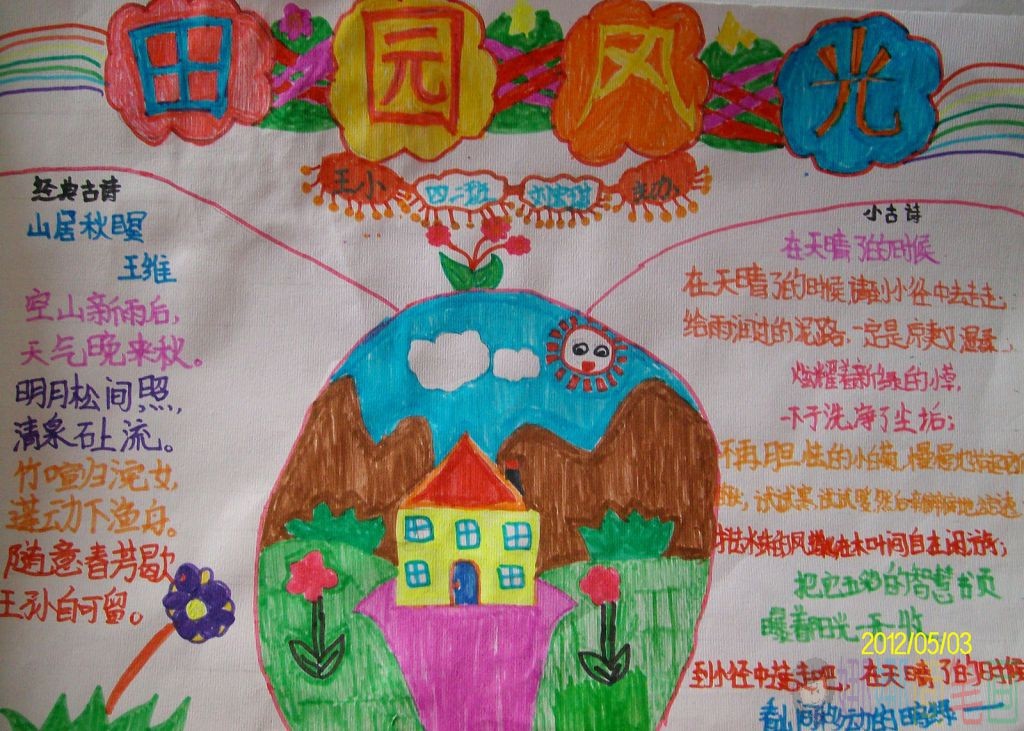 田园风光
王小 四二班 主办
经典古诗
山居秋暝
王维
空山新雨后,
天气晚来秋。
明月松间,照,
清泉石上流。
竹喧归浣女,
莲动下渔舟。
随意春芳歇
王孙自可留。
小古诗
在天晴了的时候
在天晴了的时候,请到小径中去走走:
给雨润过的泥路,一定是凉爽又温柔;
炫耀着新绿的小草,
一下子洗净了尘垢;
不再胆怯的小白菊,慢慢地
试试寒,试试暖,然后
水珠的凤蝶在木叶间自在闲游;
把它五彩的智慧书页
曝着阳光一开一收
2012/05/03
到小径中去走走吧,在天晴了的时候
看山间移动的暗绿——